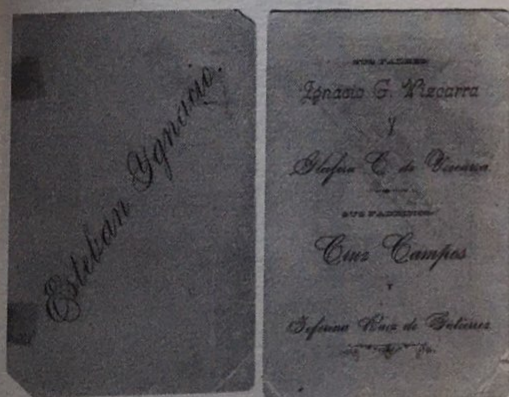 Esteban Ygnacio.
SUS PADRES
Ignacio G. Vizcarra
Y
C. de Vizcarra
SUS PADRINOS
Cruz Campos
Y
Seferina Ruiz de Gutierrez